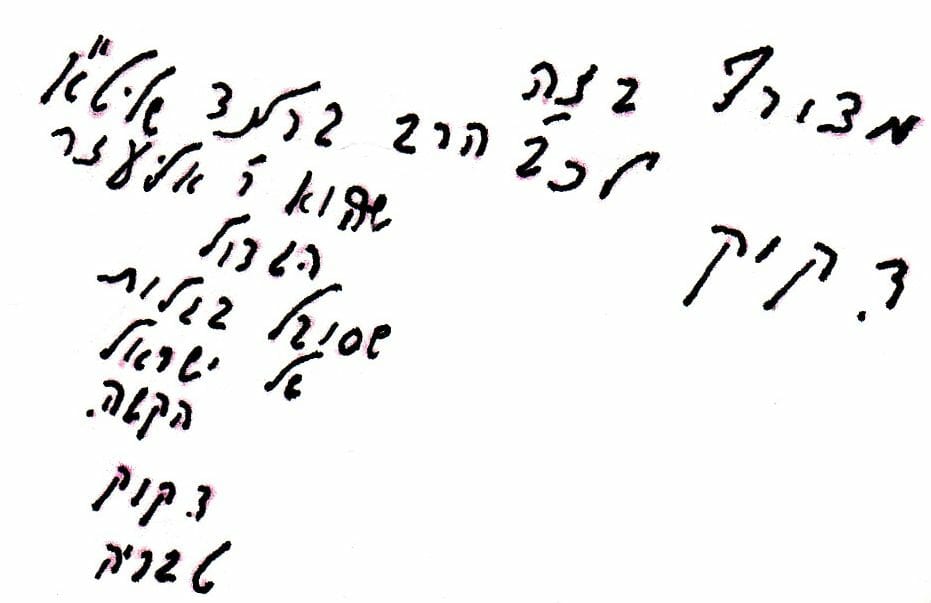 מצורף בזה
לכב' הרב ברלנד שליט"א
שהוא ר' אליעזר
הגדול
שסובל בגלות
של ישראל
הקשה.
ד. קוק
ד. קוק
טבריה